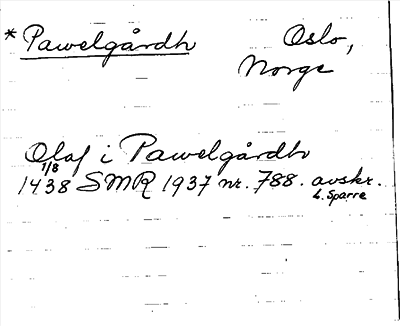 * Pawelgårdh Oslo,
Norge
Olaf i Pawelgårdh
1/8
1438 SMR 1937 nr. 788. avskr.
L. Sparre